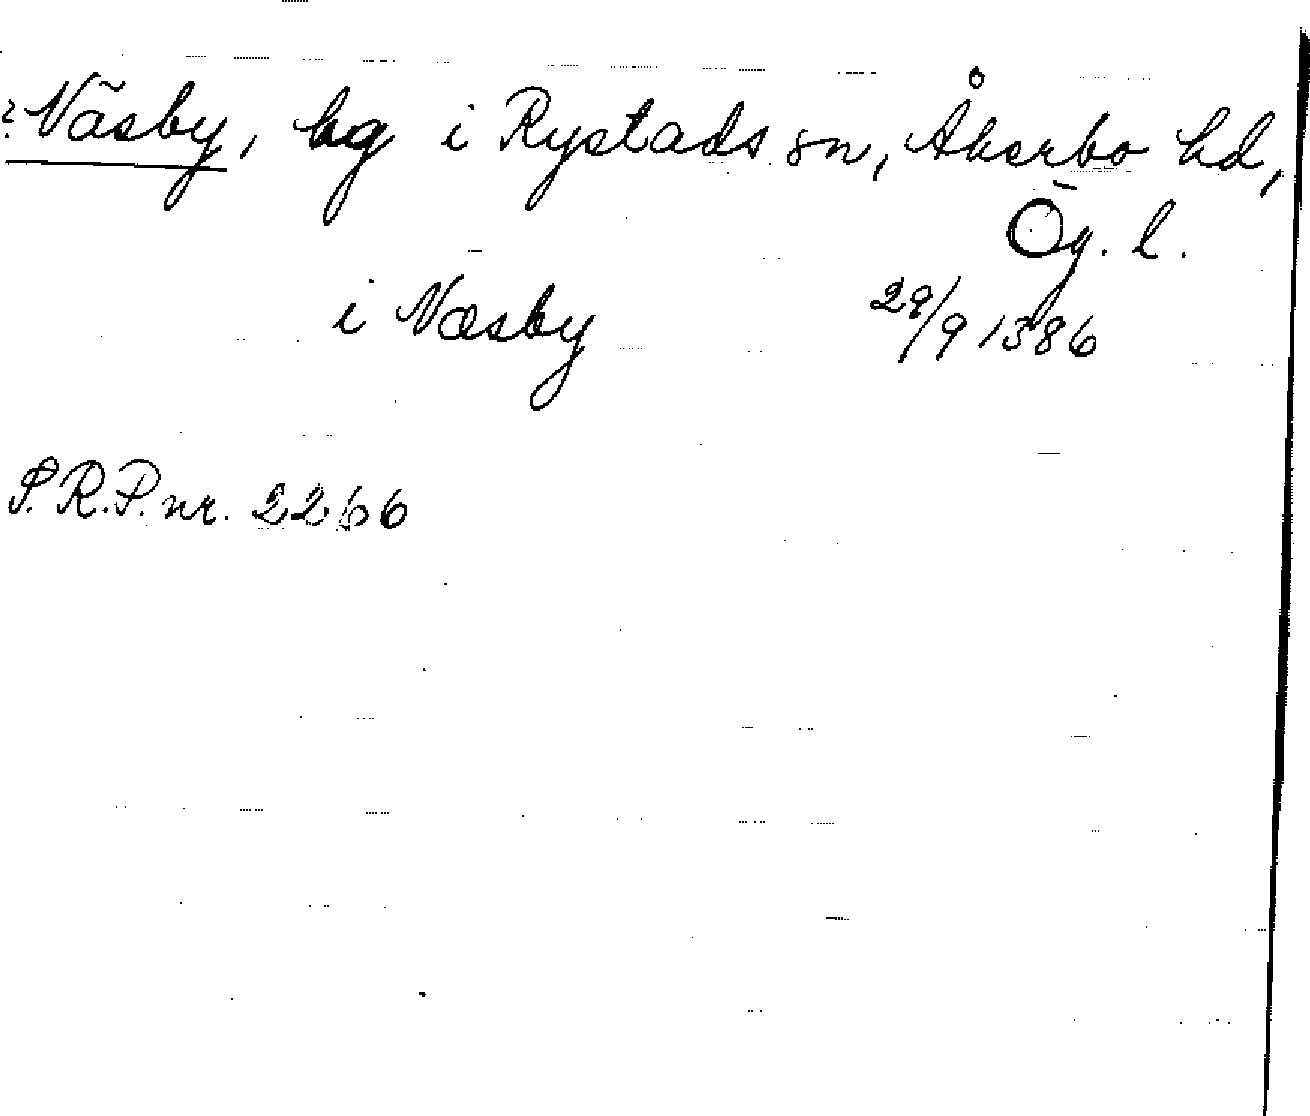 ? Näsby, hg i Rystads sn, Åkerbo hd,
Ög. l.
i Næsby 29/9 1386
S.R.P. nr. 2266